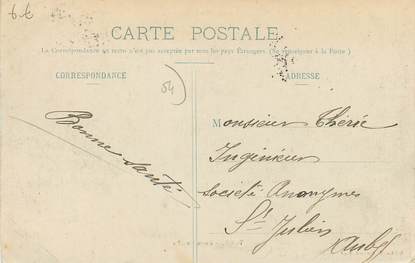 6.€
CARTE POSTALE
La Correspondance au recto n'est pas acceptée par tous les pays Étrangers (Se renseigner à la Poste)
CORRESPONDANCE
ADRESSE
54
Bonne santé
Monsieur Thérie
Ingénieur
Société Anonyme
St Julien
Aube